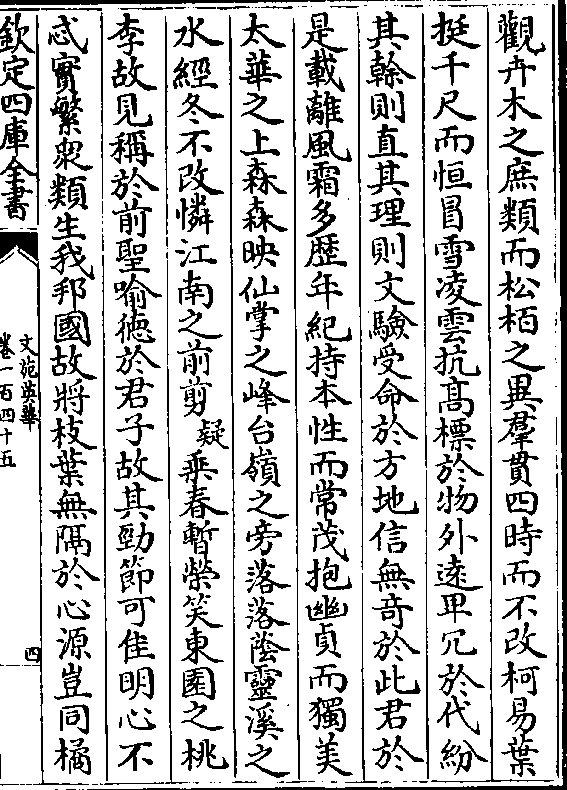 觀卉木之庶類而松栢之異羣貫四時而不改柯易葉
挺千尺而恒冒雪凌雲抗髙標於物外逺卑冗於代紛
其榦則直其理則文驗受命於方地信無竒於此君於
是載離風霜多歴年紀持本性而常茂抱幽貞而獨美
太華之上森森映仙掌之峰台嶺之旁落落蔭靈溪之
水經冬不改憐江南之前剪疑乗春暫榮笑東園之桃
李故見稱於前聖喻徳於君子故其勁節可佳明心不
忒實繁衆類生我邦國故將枝葉無隔於心源豈同橘
欽定四庫全書
文苑英華
卷一百四十五
四